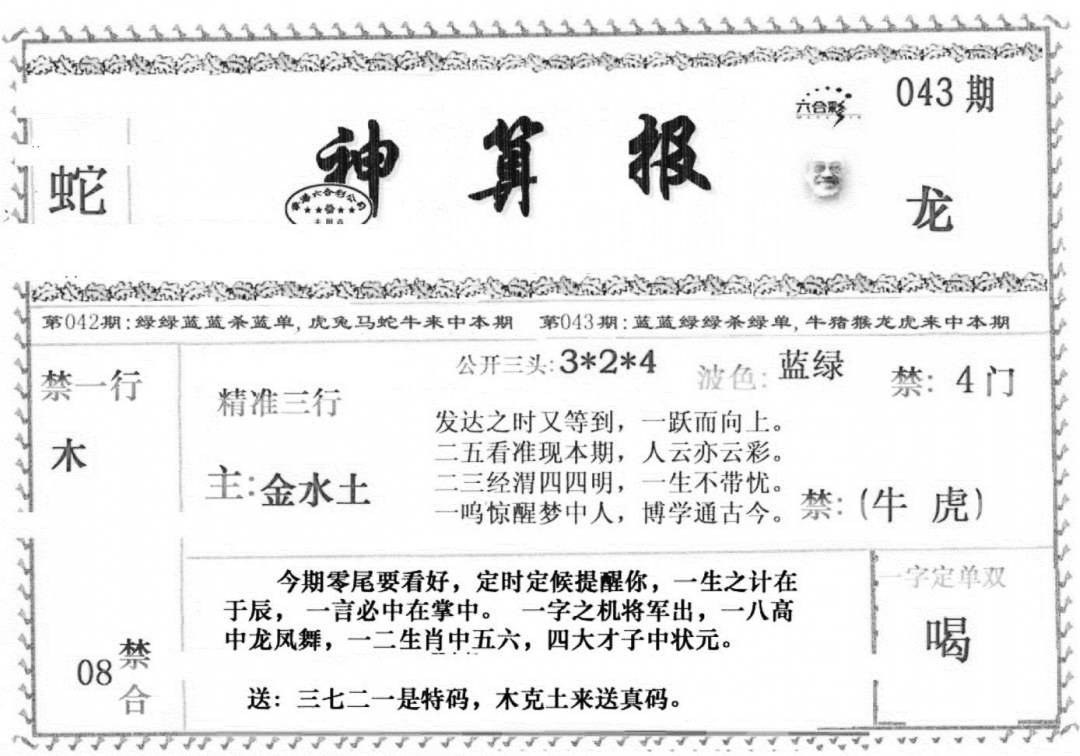 043期
六合彩
蛇
神算报
香港六合彩公司
龙
第042期:绿绿蓝蓝杀蓝单,虎兔马蛇牛来中本期 第043期:蓝蓝绿绿杀绿单,牛猪猴龙虎来中本期
禁一行
木
精准三行
主:金水土
公开三头:3*2*4
波色:蓝绿
禁:4门
发达之时又等到，一跃而向上。
二五看准现本期，人云亦云彩。
二三经渭四四明，一生不带忧。
一呜惊醒梦中人，博学通古今。
禁:(牛 虎)
今期零尾要看好，定时定候提醒你，一生之计在
于辰， 一言必中在掌中。 一字之机将军出，一八高
中龙凤舞，一二生肖中五六，四大才子中状元。
送：三七二一是特码，木克土来送真码。
一字定单双
喝
08
禁
合